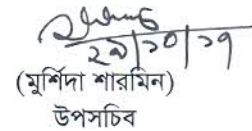 ২৯/১০/১৭
(মুর্শিদা শারমিন)
উপসচিব